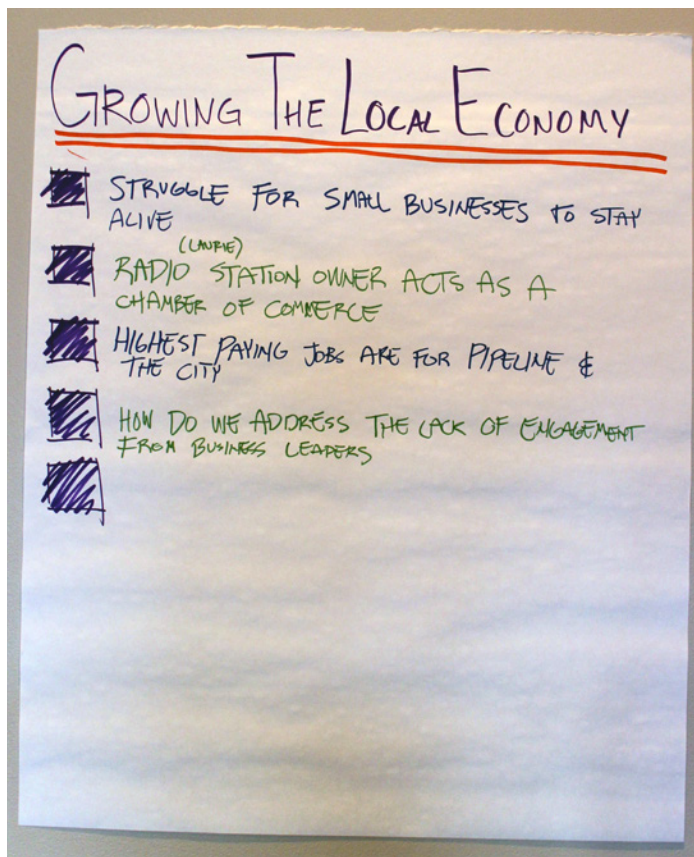 GROWING THE LOCAL ECONOMY
STRUGGLE FOR SMALL BUSINESSES TO STAY
ALIVE
(LAURIE)
RADIO STATION OWNER ACTS AS A
CHAMBER OF COMMERCE
HIGHEST PAYING JOBS ARE FOR PIPELINE &
THE CITY
HOW DO WE ADDRESS THE LACK OF ENGAGEMENT
FROM BUSINESS LEADERS